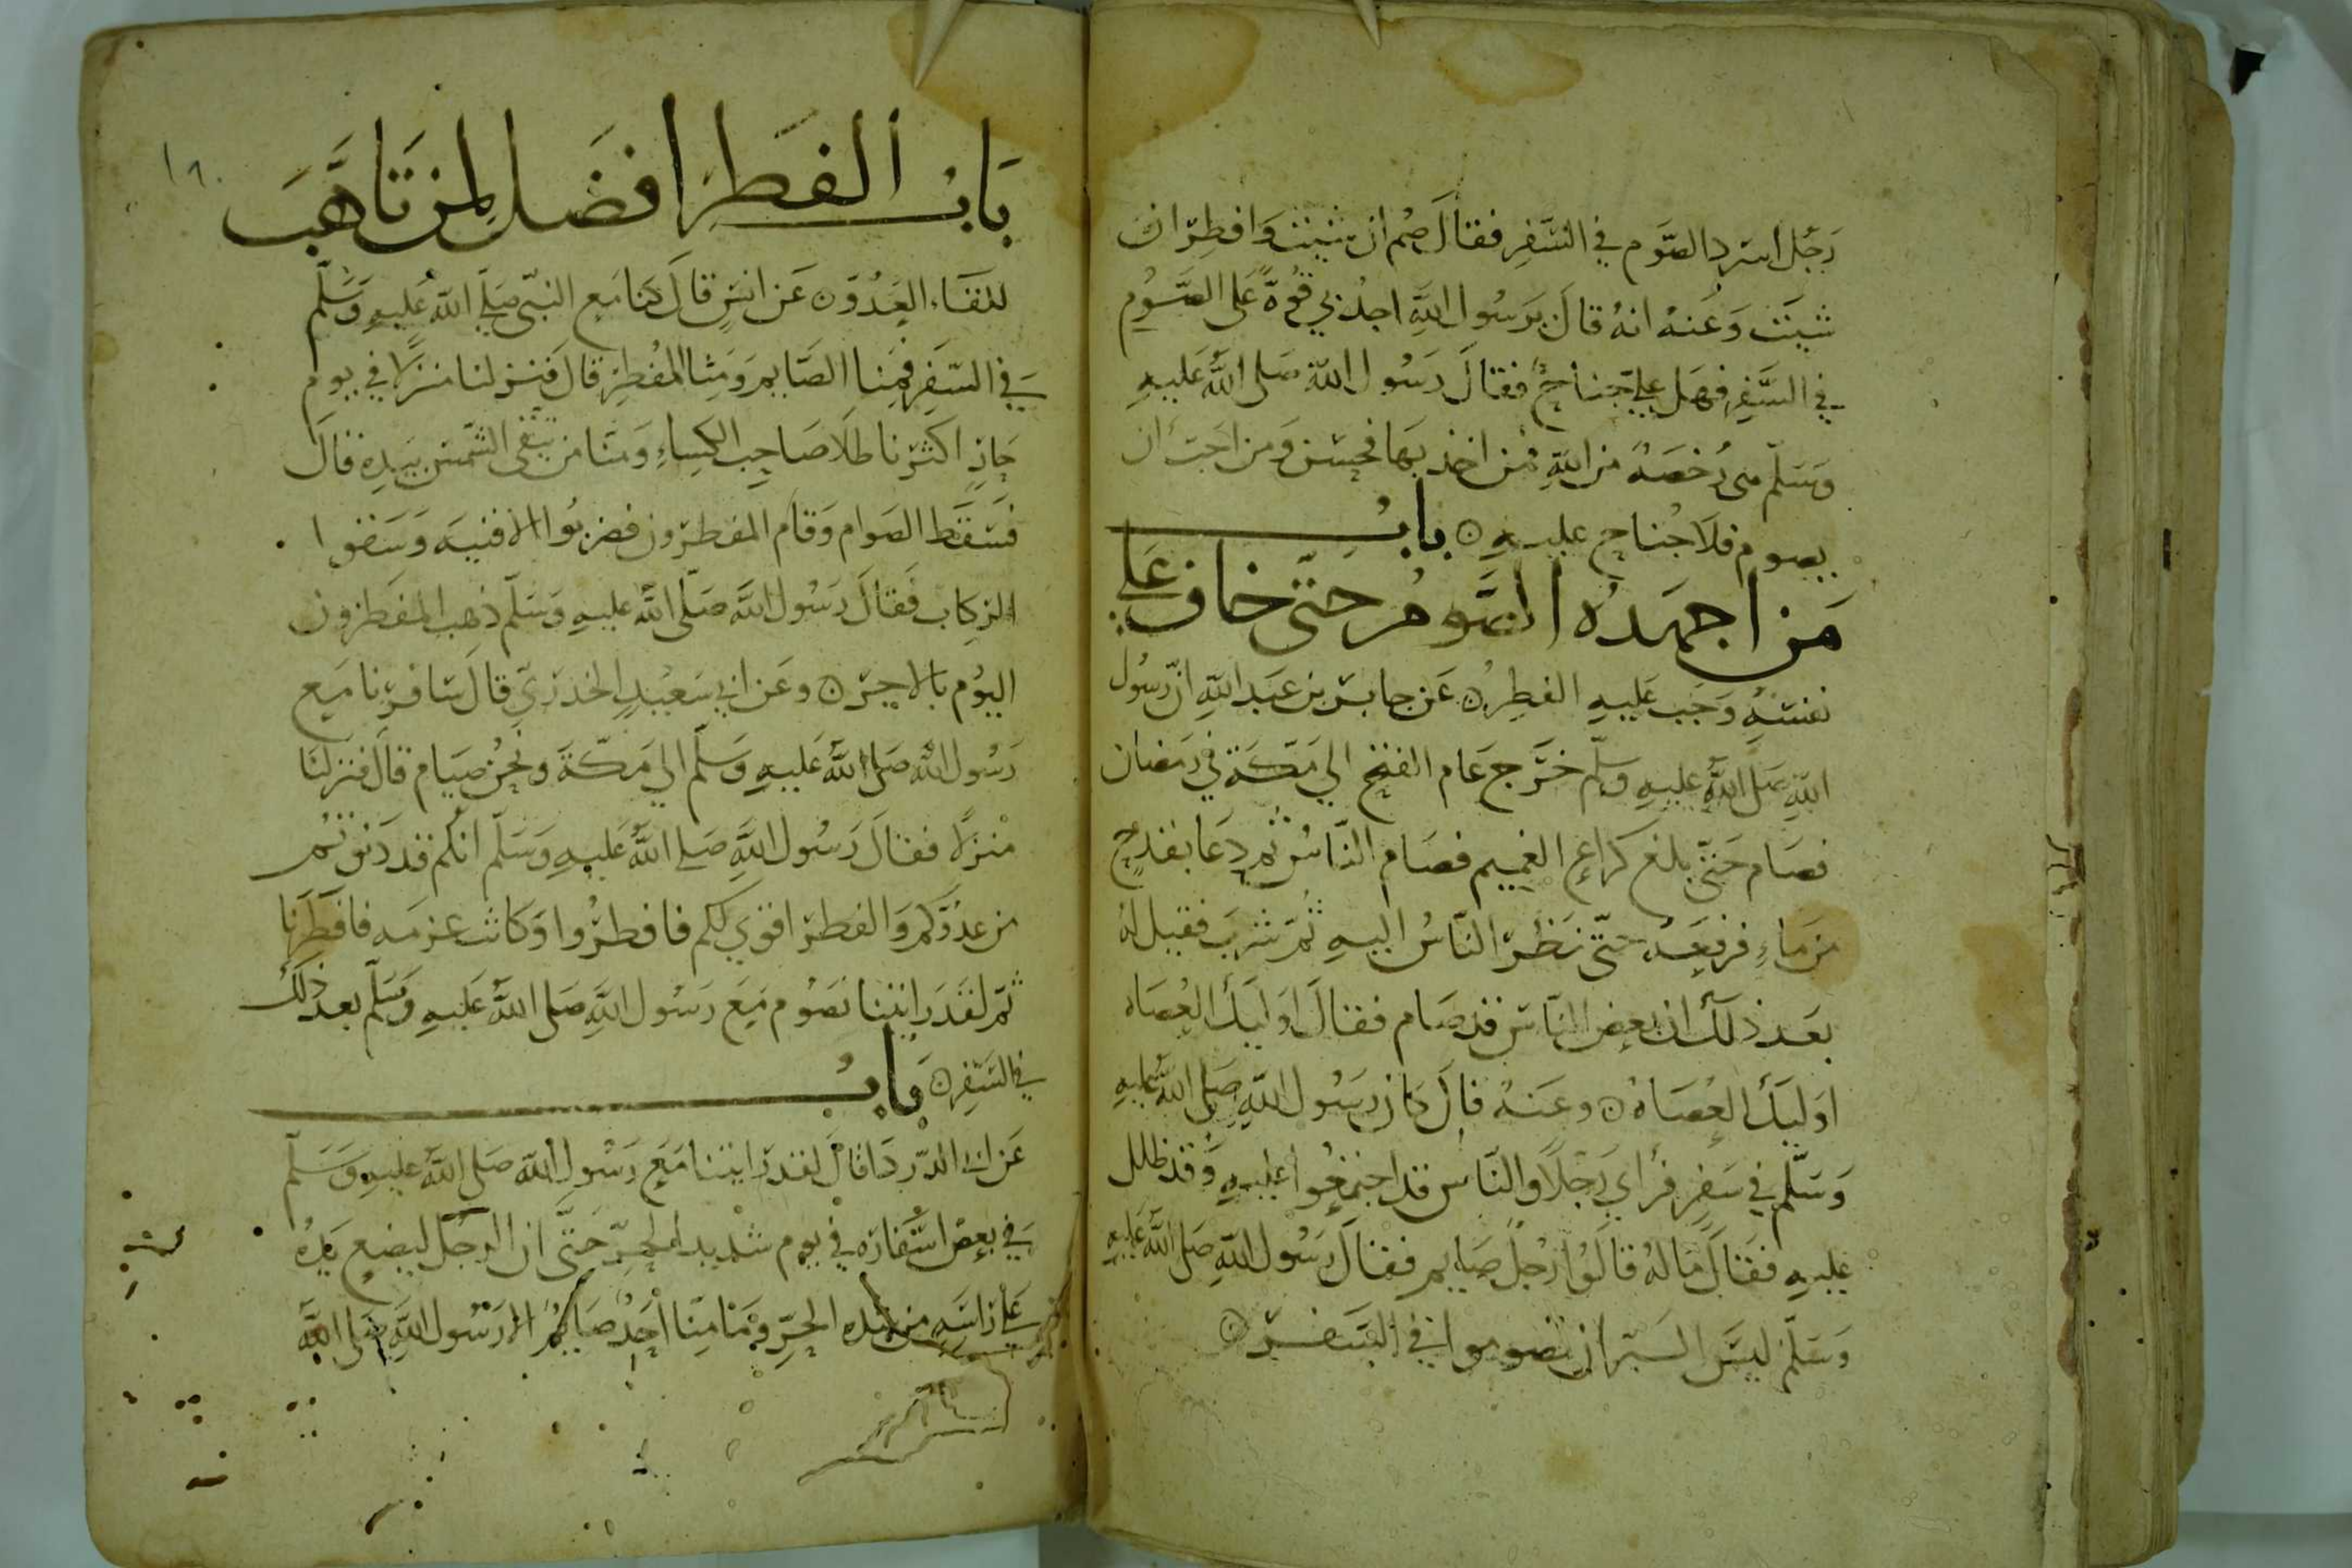 رجل اسرد الصوم في السفر فقال صم ان شيت وافطر ان
شيت وعنه انه قال يرسول الله اجد بي قوة على الصوم
في السفر فهل علي جناح فقال رسول الله صلى الله عليه
وسلم هي رخصة من الله فمن اخذ بها فحسن ومن احب ان
يصوم فلا جناح عليه باب
من اجهده الصوم حتى خاف على
نفسه وجب عليه الفطر عن جابر بن عبد الله ان رسول
الله صلى الله عليه وسلم خرج عام الفتح الي مكة في رمضان
فصام حتى بلغ كراع الغميم فصام الناس ثم دعا بقدح
من ماء فرفعه حتى نظر الناس اليه ثم شرب فقيل له
بعد ذلك ان بعض الناس قد صام فقال اوليك العصاه
اوليك العصاه وعنه قال كان رسول الله صلى الله عليه
وسلم في سفر فراي رجلا والناس قد اجتمعوا عليه وقد ظلل
عليه فقال ما له قالوا رجل صايم فقال رسول الله صلى الله عليه
وسلم ليس البر ان تصوموا في السفر
١٦٠
باب الفطر افضل لمن تاهب
للقاء العدو عن انس قال كنا مع النبي صلى الله عليه وسلم
في السفر فمنا الصايم ومنا المفطر قال فنزلنا منزلا في يوم
حار اكثرنا ظلا صاحب الكساء ومنا من يتقي الشمس بيده قال
فسقط الصوام وقام المفطرون فضربوا الافنيه وسقوا
الركاب فقال رسول الله صلى الله عليه وسلم ذهب المفطرون
اليوم بالاجر وعن ابي سعيد الخدري قال سافرنا مع
رسول الله صلى الله عليه وسلم الي مكة ونحن صيام قال فنزلنا
منزلا فقال رسول الله صلى الله عليه وسلم انكم قد دنوتم
من عدوكم والفطر اقوي لكم فافطروا وكانت عزمه فافطرنا
ثم لقد رايتنا نصوم مع رسول الله صلى الله عليه وسلم بعد ذلك
في السفر باب
عن ابي الدردا قال لقد رايتنا مع رسول الله صلى الله عليه وسلم
في بعض اسفاره في يوم شديد الحر حتى ان الرجل ليضع يده
على راسه من شده الحر وما منا احد صايم الا رسول الله صلى الله